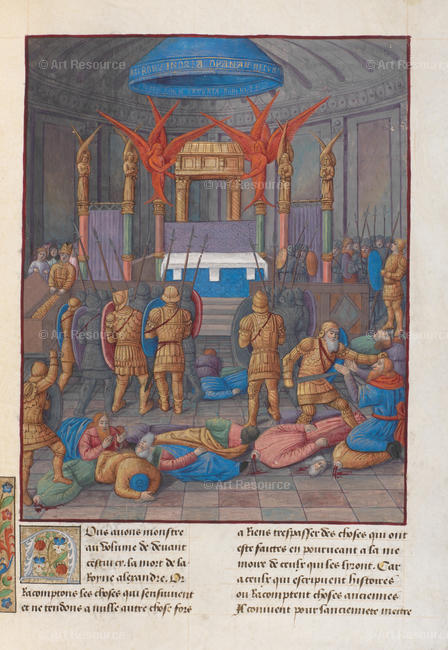 © Art Resource
© Art Resource
© Art Resource
© Art Resource
© Art Resource
© Art Resource
© Art Resource
© Art Resource
© Art Resource
© Art Resource
Nous avons monstre
au volume de devant
cestui cy, la mort de la
Royne alexandre. Or
Racomptons les choses qui sensuivent
et ne tendons a nulle autre chose fors
a Riens trespasser des choses qui ont
este faittes en pourveant a la me
moire de ceulx qui les liront. Car
a ceulx qui escripvent histoires
ou Racomptent choses anciennes
Il convient pour lanciennete mettre